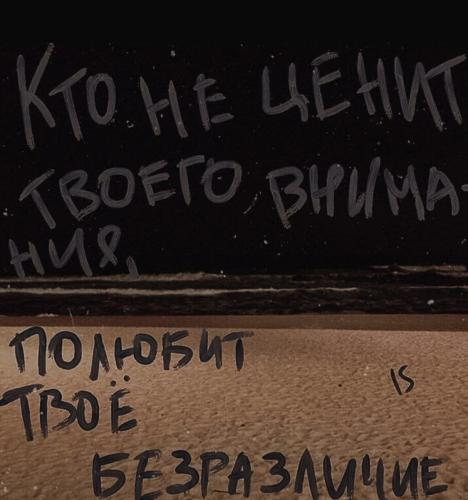 КТО НЕ ЦЕНИТ
ТВОЕГО ВНИМА-
НИЯ,
ПОЛЮБИТ
IS
ТВОЁ
БЕЗРАЗЛИЧИЕ